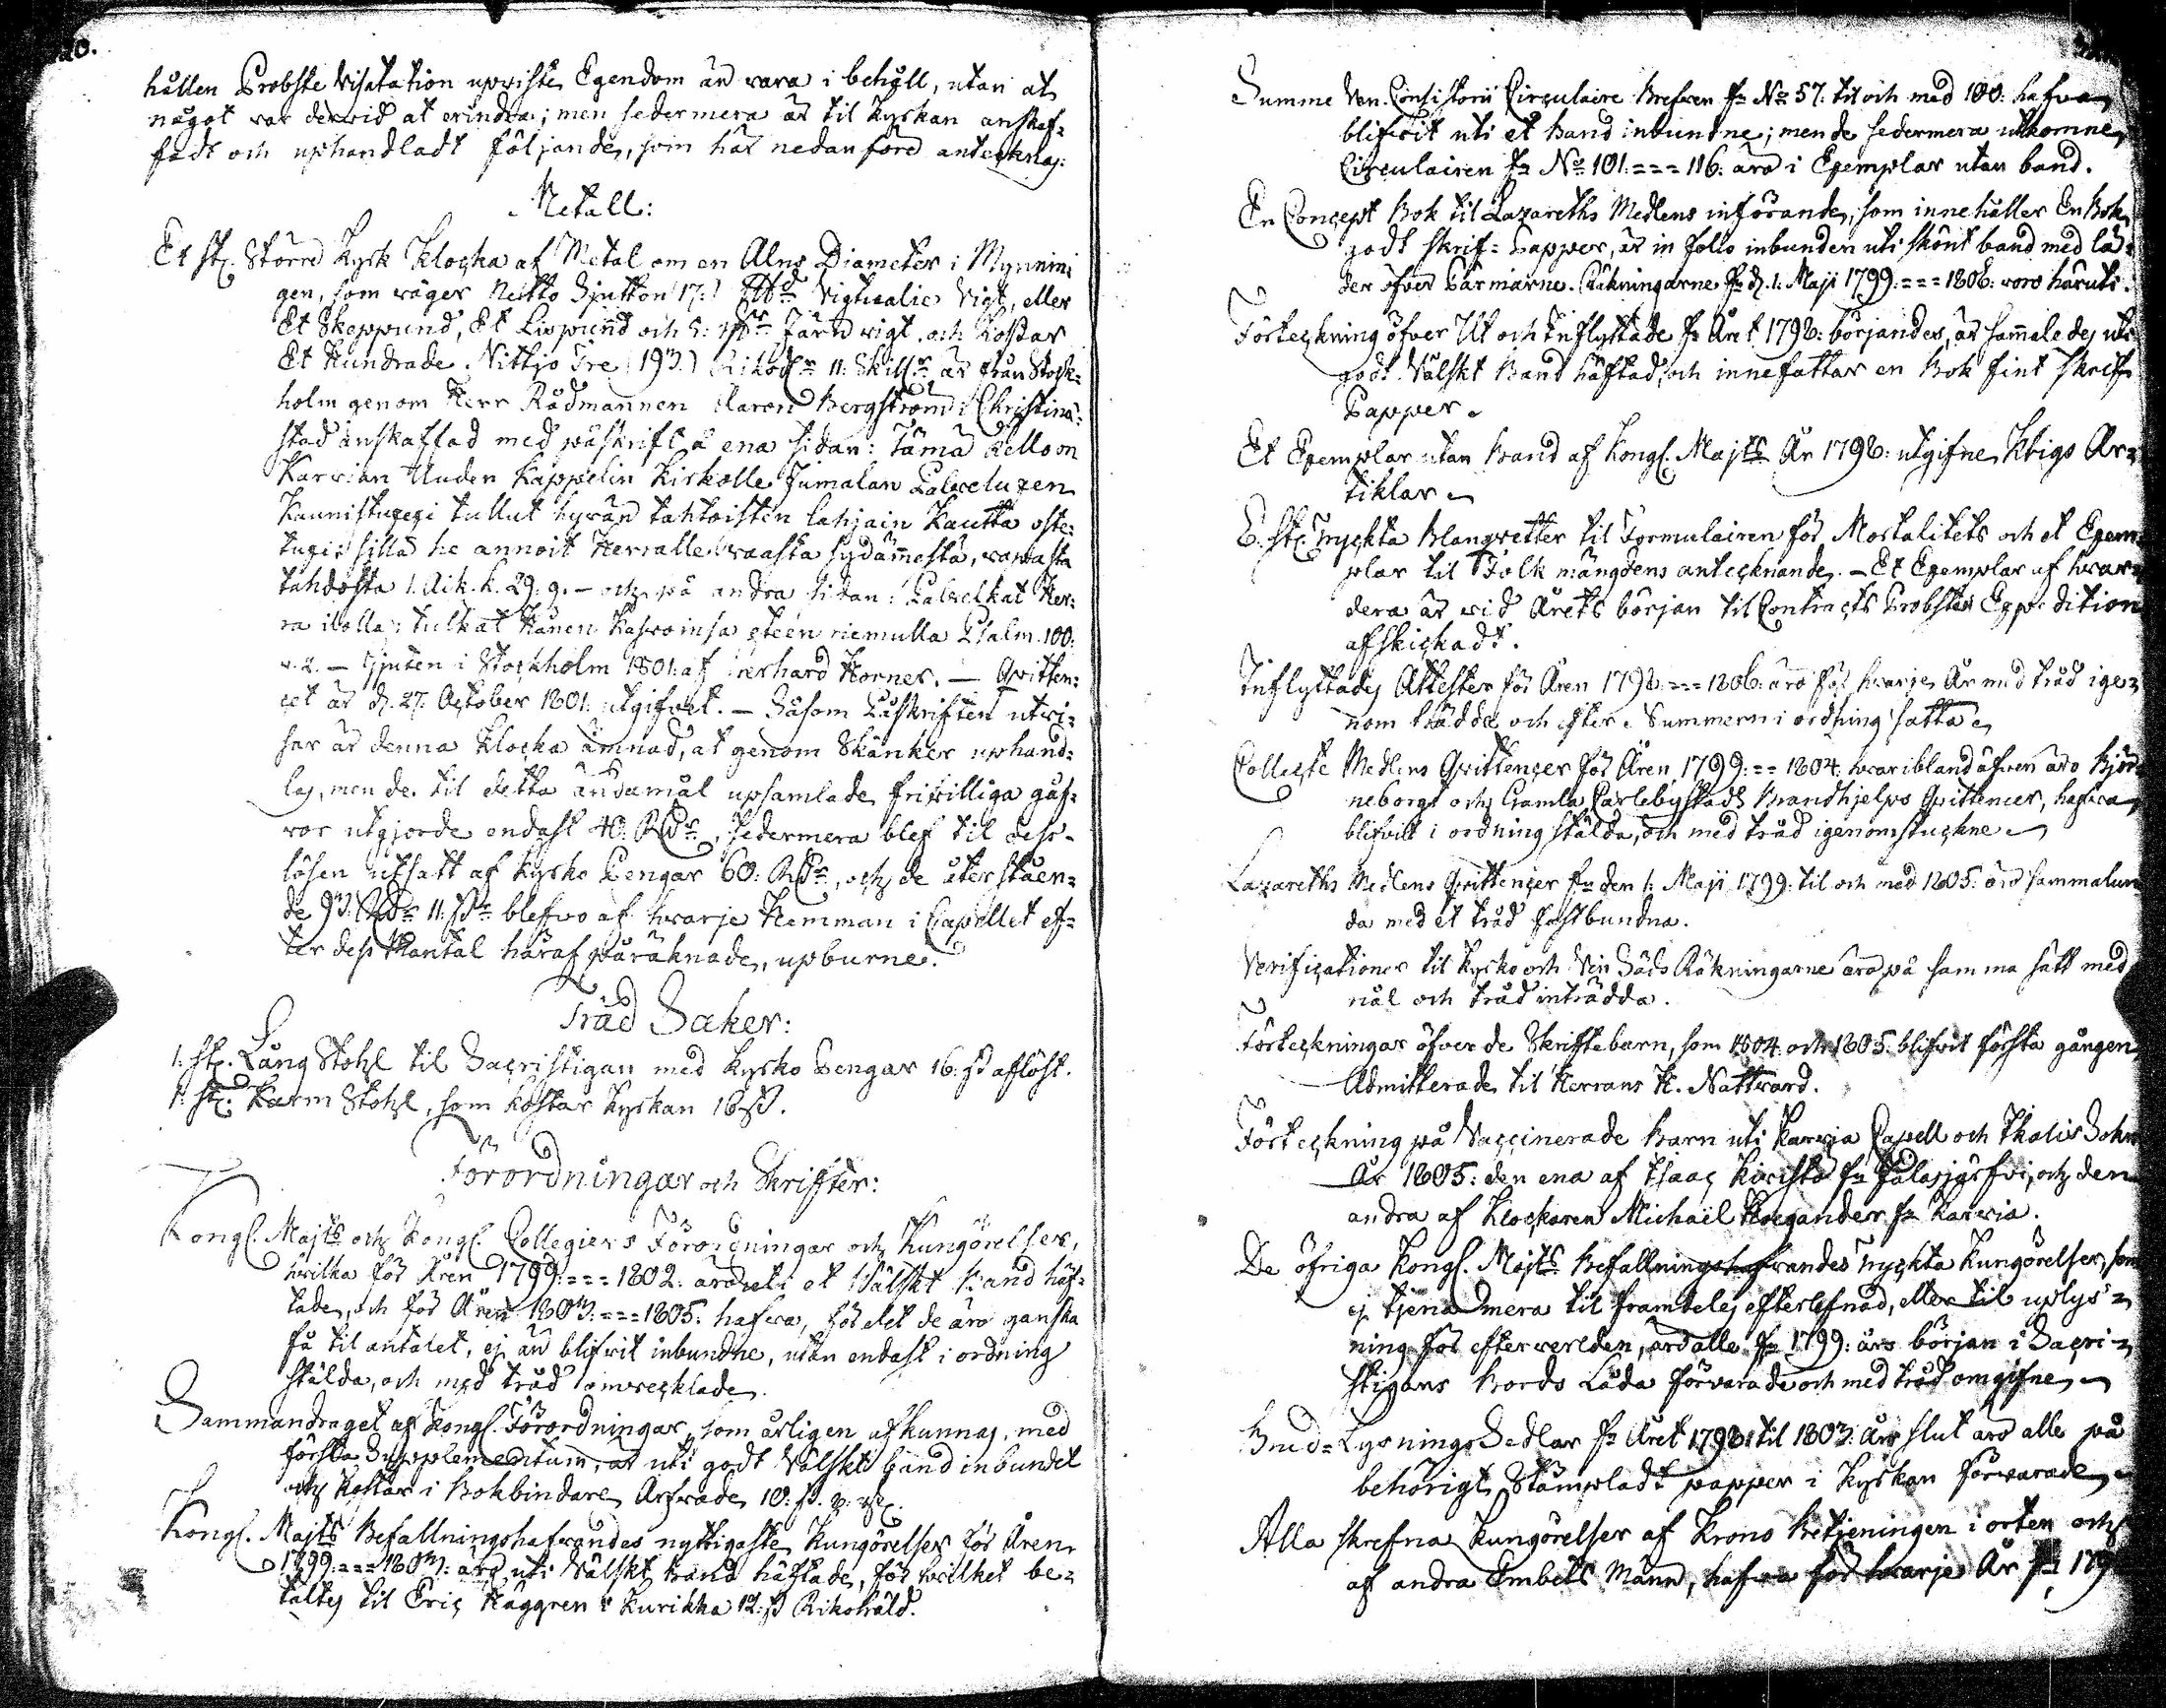 20.
hållen Probste Visitation upviste Egendom än vara i behåll, utan at
något var dervid at erindra; men sedermera är til Kyrkan anskaf=
fadt och uphandladt följande, som här nedanföre anteknas:
Metall:
Et st. Större Kyrk Klocka af Metal om en Alns Diameter i Mynnin
gen, som väger Netto Sjutton (17.) Victualie Vigt, eller
Et Skeppund, Et Lispund och 5: Järn vigt, och kostar
Et Hundrade Nittjo Tre (193.) Riksd:r 11: Skill:r är från Stock=
holm genom Herr Rådmannen Aaron Bergström i Christinæ
stad anskaffad med påskrift å ena sidan: Tämä Kello on
Karvian Uuden Kappelin Kirkolle Jumalan Palveluxen
Kaunistuxexi tullut hyväin tahtoisten lahjain kautta oste=
tuxi; sillä he annoit Herralle vaasta sydämmestä, vapasta
tahdosta 1. Aik. k. 29. 9. – och på andra sidan: Palvelkat Her=
ra ilolla; tulkat hänen Kasvoinsa eteen riemulla Psalm. 100:
v. 2. – Gjuten i Stockholm 1801: af Gerhard Horner. – Qvitten=
cet är d. 27. October 1801. utgifvet. – Såsom Påskriften utvi=
sar är denna Klocka ämnad, at genom Skänker uphand=
las, men de til detta ändamål upsamlade frivilliga gåf=
vor utgjorde endast 40: Rd:r, sedermera blef til dess
lösen utsatt af Kyrko Pengar 60: Rd:r, och de återståen=
de 93: Rd:r 11: sk:r blefvo af hvarje Hemman i Capellet ef=
ter dess Mantal häraf påräknade, upburne.
Träd Saker:
1. st. Lång Stohl til Sacristigan med Kyrko Pengar 16: sk aflöst.
1. st. Karm Stohl, som kostar Kyrkan 16 sk.
Förordningar och Skrifter:
Kongl. Majts och Kongl. Collegiers Förordningar och Kungörelser,
hvilka för Åren 1799:===1802: äro uti et Wälskt Band häf=
tade, och för Åren 1803:===1805: hafva, för det de äro ganska
få til antalet, ej än blifvit inbundne, utan endast i ordning
stälda, och med tråd omvecklade.
Sammandraget af Kongl. Förordningar, som årligen afkunnas, med
första Supplementum, är uti godt Välskt band inbundet
och kostar i Bokbindare Arfvode 10: sk. 8: rst.
Kongl. Majts Befallningshafvandes nyttigaste Kungörelser för Åren
1799:===1803: äro uti Välskt band häftade, för hvilket be=
taltes til Eric Häggren i Kurikka 12: sk Riksgäld.
Summe Ven. Consistorii Circulaire Brefven fr. No 57: til och med 100: hafva
blifvit uti et band inbundne; men de sedermera utkomne
Circulairen fr. No 101:===116: äro i Exemplar utan band.
En Concept Bok til Lazareths Medlens införande, som innehåller En Bok
godt skrif=Papper, är in folio inbunden uti skönt band med lä=
der öfver Pärmarne. Räkningarne fr. d. 1. Maji 1799:===1806: voro häruti.
Förteckning öfver Ut och Inflyttade fr. Året 1798: börjandes, är sammaledes uti
godt Välskt Band häftad, och innefattar en Bok fint skrif=
Papper.
Et Exemplar utan Band af Kongl. Majts År 1798: utgifne Krigs Ar=
tiklar.
6. st. Tryckta Blanqvetter til Formulairen för Mortalitets och et Exem=
plar til Folk mängdens antecknande. – Et Exemplar af hvar=
dera är vid Årets början til Contracts Probsten Expedition
afskickadt.
Inflyttades Attester för Åren 1798:===1806: äro för hvarje År med tråd ige=
nom trädde och efter Nummern i ordning satta.
Collecte Medlens Qvittencer för Åren 1799:==1804: hvaribland äfven äro Björ=
neborgs och Gamla Carleby stads Brandhjelps Qvittencer, hafva
blifvit i ordning stälda, och med tråd igenomstuckne.
Lazareths Medlens Qvittencer fr. den 1. Maji 1799: til och med 1805: äro sammalun
da med et tråd fastbundna.
Verificationer til Kyrko och Vin Säds Räkningarne äro på samma sätt med
nål och tråd inträdda.
Förteckningar öfver de Skriftebarn, som 1804. och 1805. blifvit första gången
Admitterade til Herrans H. Nattvard.
Förteckning på Vaccinerade Barn uti Karvia Capell och Ikalis Sokn
År 1805: den ena af Isaac Kivistö fr. Jalasjärfvi, och den
andra af Klockaren Michaël fr. Karvia.
De öfriga Kongl. Majts Befallningshafvandes Tryckta Kungörelser, som
ej tjena mera til framteles efterlefnad, eller til uplys=
ning för efterverlden, äro alle fr. 1799: års början i Sacri=
stigans Bords Låda förvarade och med tråd omgifne.
Brud=Lysnings Sedlar fr. Året 1798: til 1803: Års slut äro alle på
behörigt Stämpladt papper i Kyrkan förvarade.
Alla skrefna Kungörelser af Krono Betjeningen i orten och
af andra Embets Männ, hafva för hvarje År fr. 179